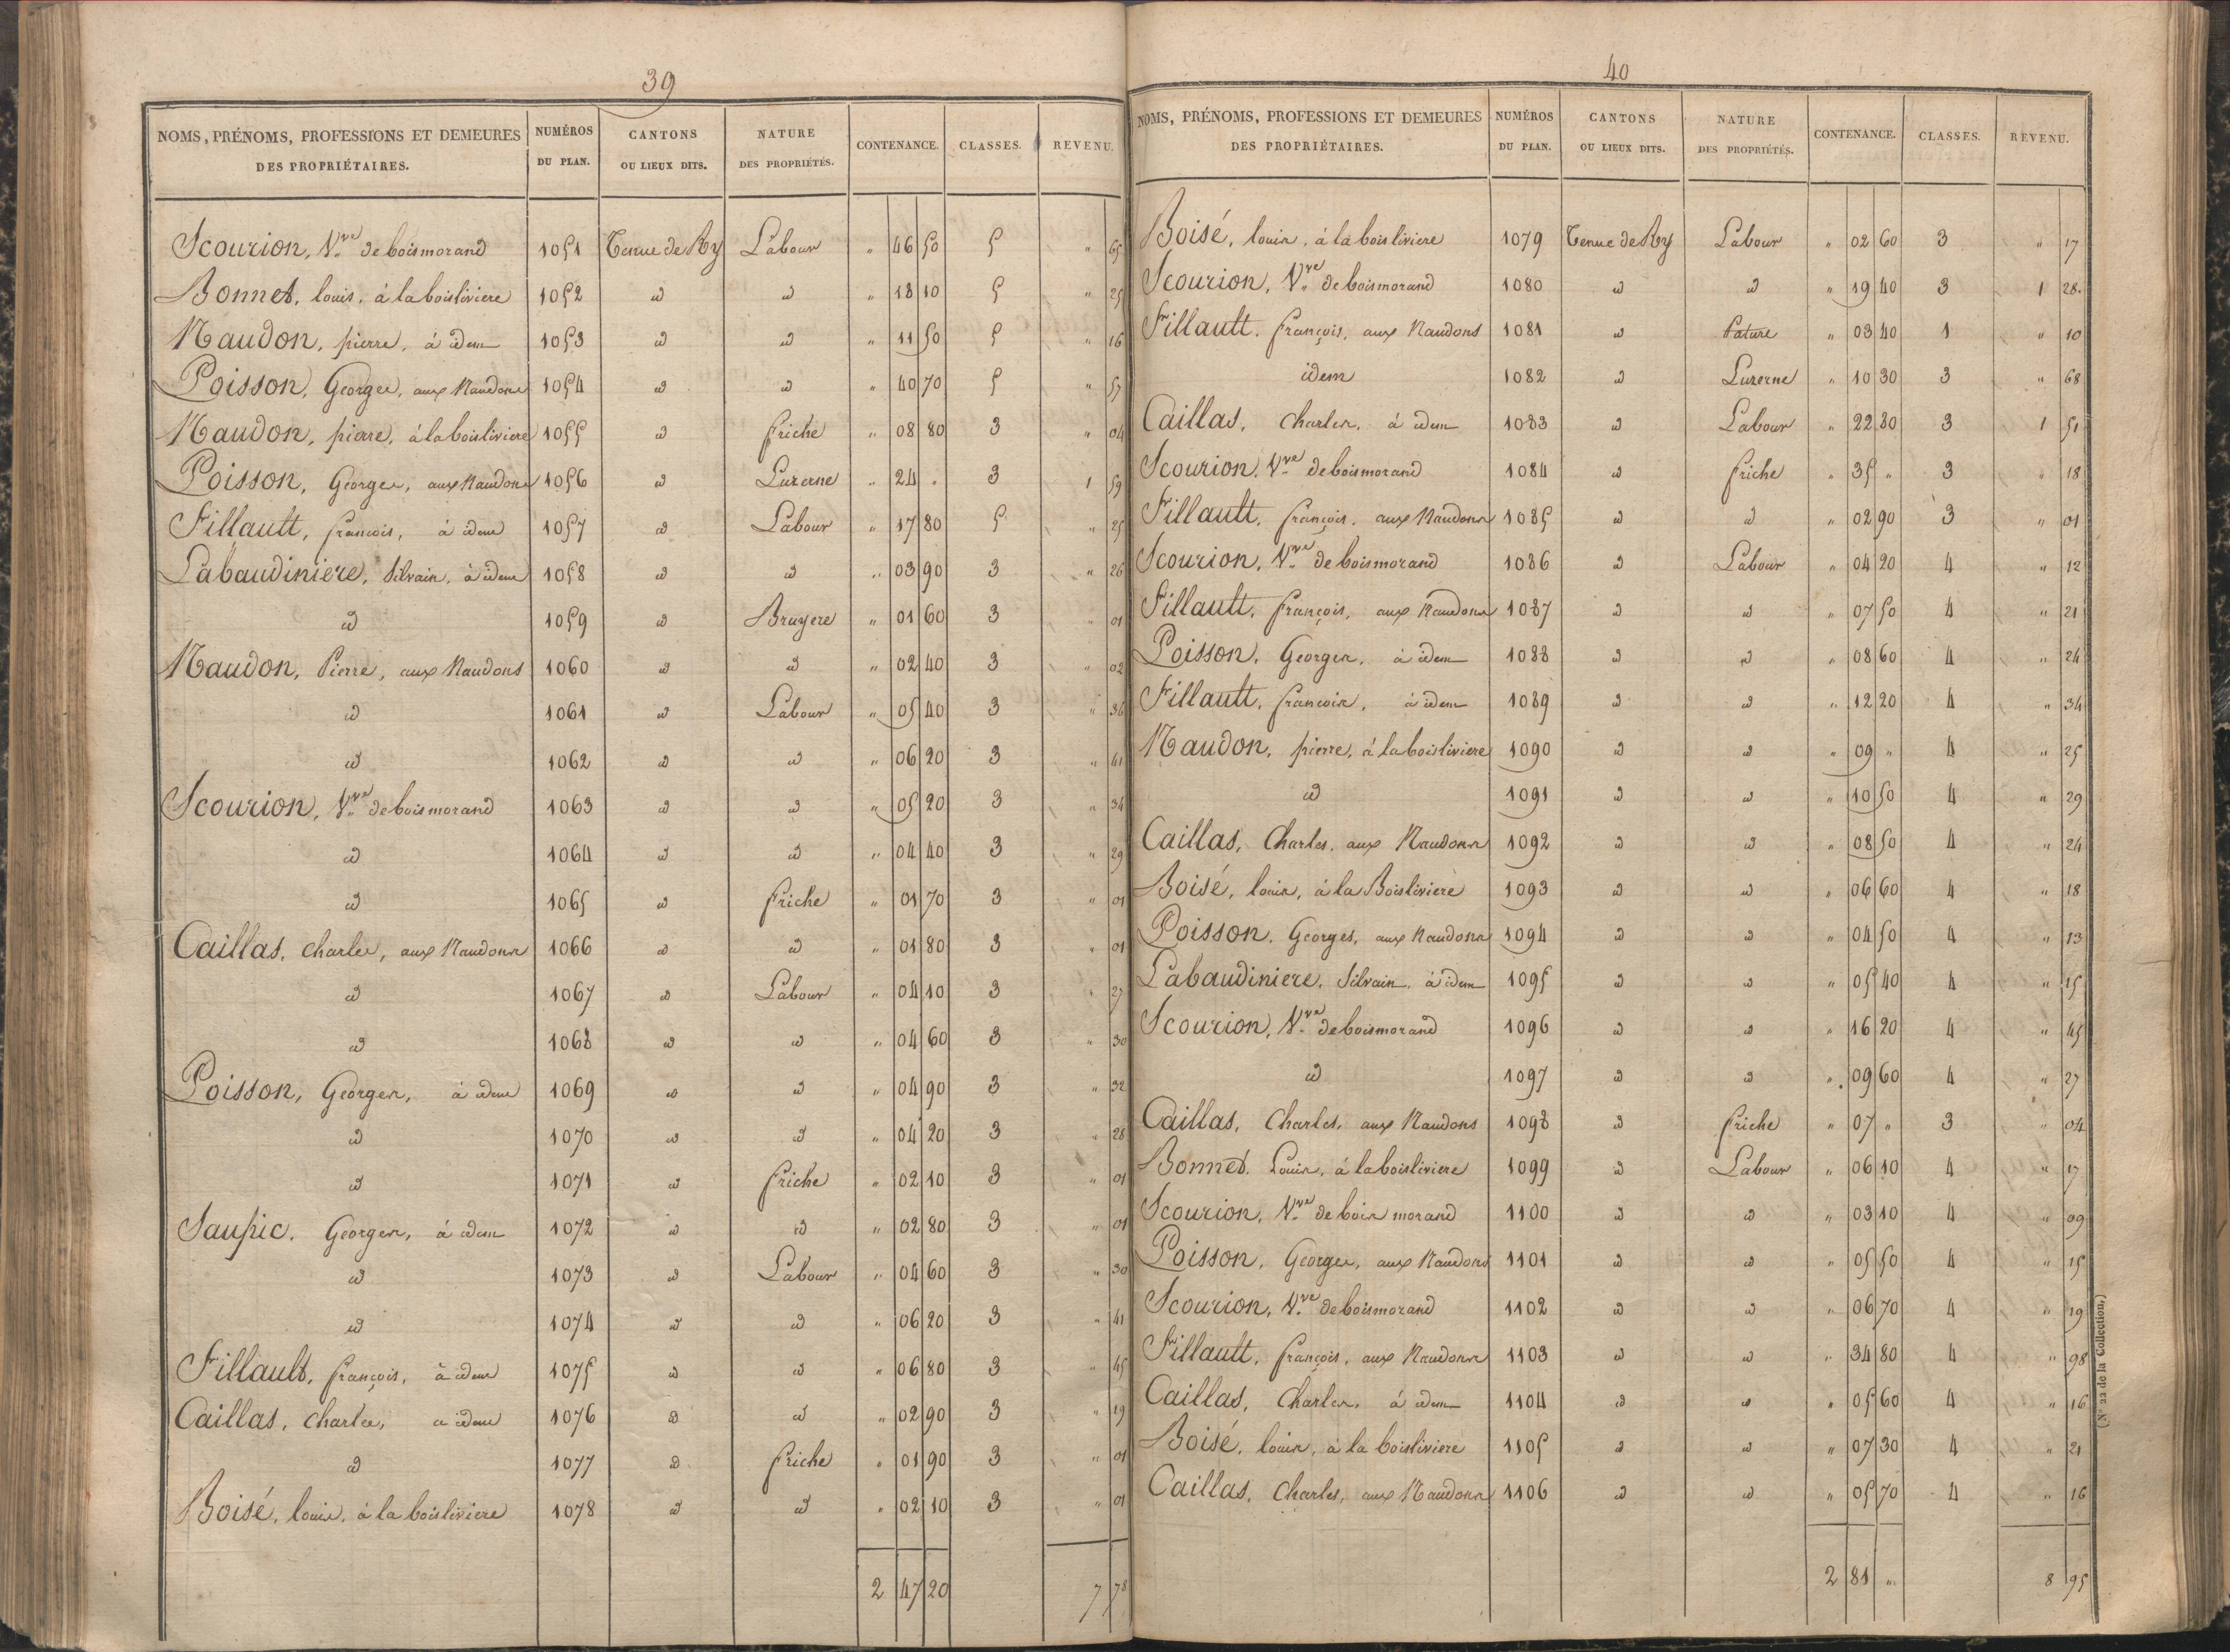 39
NOMS, PRÉNOMS, PROFESSIONS ET DEMEURES DES PROPRIÉTAIRES. NUMÉROS DU PLAN. CANTONS OU LIEUX DITS. NATURE DES PROPRIÉTÉS. CONTENANCE. CLASSES. REVENU.
Scourion, Vve de boismorand 1051 Tenue de Ry Labour " 46 50 5 " 65
Bonnet, louis, à la boisliviere 1052 id id " 18 10 5 " 25
Naudon, pierre, à idem 1053 id id " 11 50 5 " 16
Poisson, Georges, aux Naudons 1054 id id " 40 70 5 " 57
Naudon, pierre, à la boisliviere 1055 id friche " 08 80 3 " 04
Poisson, Georges, aux Naudons 1056 id Luzerne " 24 " 3 1 59
Fillault, francois, à idem 1057 id Labour " 17 80 5 " 25
Labaudiniere, Silvain, à idem 1058 id id " 03 90 3 " 26
id 1059 id Bruyere " 01 60 3 " 01
Naudon, Pierre, aux Naudons 1060 id id " 02 40 3 " 02
id 1061 id Labour " 05 40 3 " 36
id 1062 id id " 06 20 3 " 41
Scourion, Vve de boismorand 1063 id id " 05 20 3 " 34
id 1064 id id " 04 40 3 " 29
id 1065 id friche " 01 70 3 " 01
Caillas, charles, aux Naudons 1066 id id " 01 80 3 " 01
id 1067 id Labour " 04 10 3 " 27
id 1068 id id " 04 60 3 " 30
Poisson, Georges, à idem 1069 id id " 04 90 3 " 32
id 1070 id id " 04 20 3 " 28
id 1071 id friche " 02 10 3 " 01
Saupic, Georges, à idem 1072 id id " 02 80 3 " 01
id 1073 id Labour " 04 60 3 " 30
id 1074 id id " 06 20 3 " 41
Fillault, françois, à idem 1075 id id " 06 80 3 " 45
Caillas, charles, a idem 1076 id id " 02 90 3 " 19
id 1077 id friche " 01 90 3 " 01
Boisé, louis, à la boisliviere 1078 id id " 02 10 3 " 01
2 47 20 7 78
40
NOMS, PRÉNOMS, PROFESSIONS ET DEMEURES DES PROPRIÉTAIRES. NUMÉROS DU PLAN. CANTONS OU LIEUX DITS. NATURE DES PROPRIÉTÉS. CONTENANCE. CLASSES. REVENU.
Boisé, louis, à la boisliviere 1079 Tenue de Ry Labour " 02 60 3 " 17
Scourion, Vve de boismorand 1080 id id " 19 40 3 1 28
Fillault, françois, aux Naudons 1081 id Pature " 03 40 1 " 10
idem 1082 id Luzerne " 10 30 3 " 68
Caillas, Charles, à idem 1083 id Labour " 22 80 3 1 51
Scourion, Vve de boismorand 1084 id friche " 35 " 3 " 18
Fillault, françois, aux Naudons 1085 id id " 02 90 3 " 01
Scourion, Vve de boismorand 1086 id Labour " 04 20 4 " 12
Fillault, françois, aux Naudons 1087 id id " 07 50 4 " 21
Poisson, Georges, à idem 1088 id id " 08 60 4 " 24
Fillault, francois, à idem 1089 id id " 12 20 4 " 34
Naudon, pierre, à la boisliviere 1090 id id " 09 " 4 " 25
id 1091 id id " 10 50 4 " 29
Caillas, Charles, aux Naudons 1092 id id " 08 50 4 " 24
Boisé, louis, à la Boisliviere 1093 id id " 06 60 4 " 18
Poisson, Georges, aux Naudons 1094 id id " 04 50 4 " 13
Labaudiniere, Silvain, à idem 1095 id id " 05 40 4 " 15
Scourion, Vve de boismorand 1096 id id " 16 20 4 " 45
id 1097 id id " 09 60 4 " 27
Caillas, Charles, aux Naudons 1098 id friche " 07 " 3 " 04
Bonnet, Louis, à la boisliviere 1099 id Labour " 06 10 4 " 17
Scourion, Vve de bois morand 1100 id id " 03 10 4 " 09
Poisson, Georges, aux Naudons 1101 id id " 05 50 4 " 15
Scourion, Vve de boismorand 1102 id id " 06 70 4 " 19
Fillault, françois, aux Naudons 1103 id id " 34 80 4 " 98
Caillas, Charles, à idem 1104 id id " 05 60 4 " 16
Boisé, louis, à la boisliviere 1105 id id " 07 30 4 " 21
Caillas, Charles, aux Naudons 1106 id id " 05 70 4 " 16
2 81 " 8 95
(N° 22 de la Collection.)